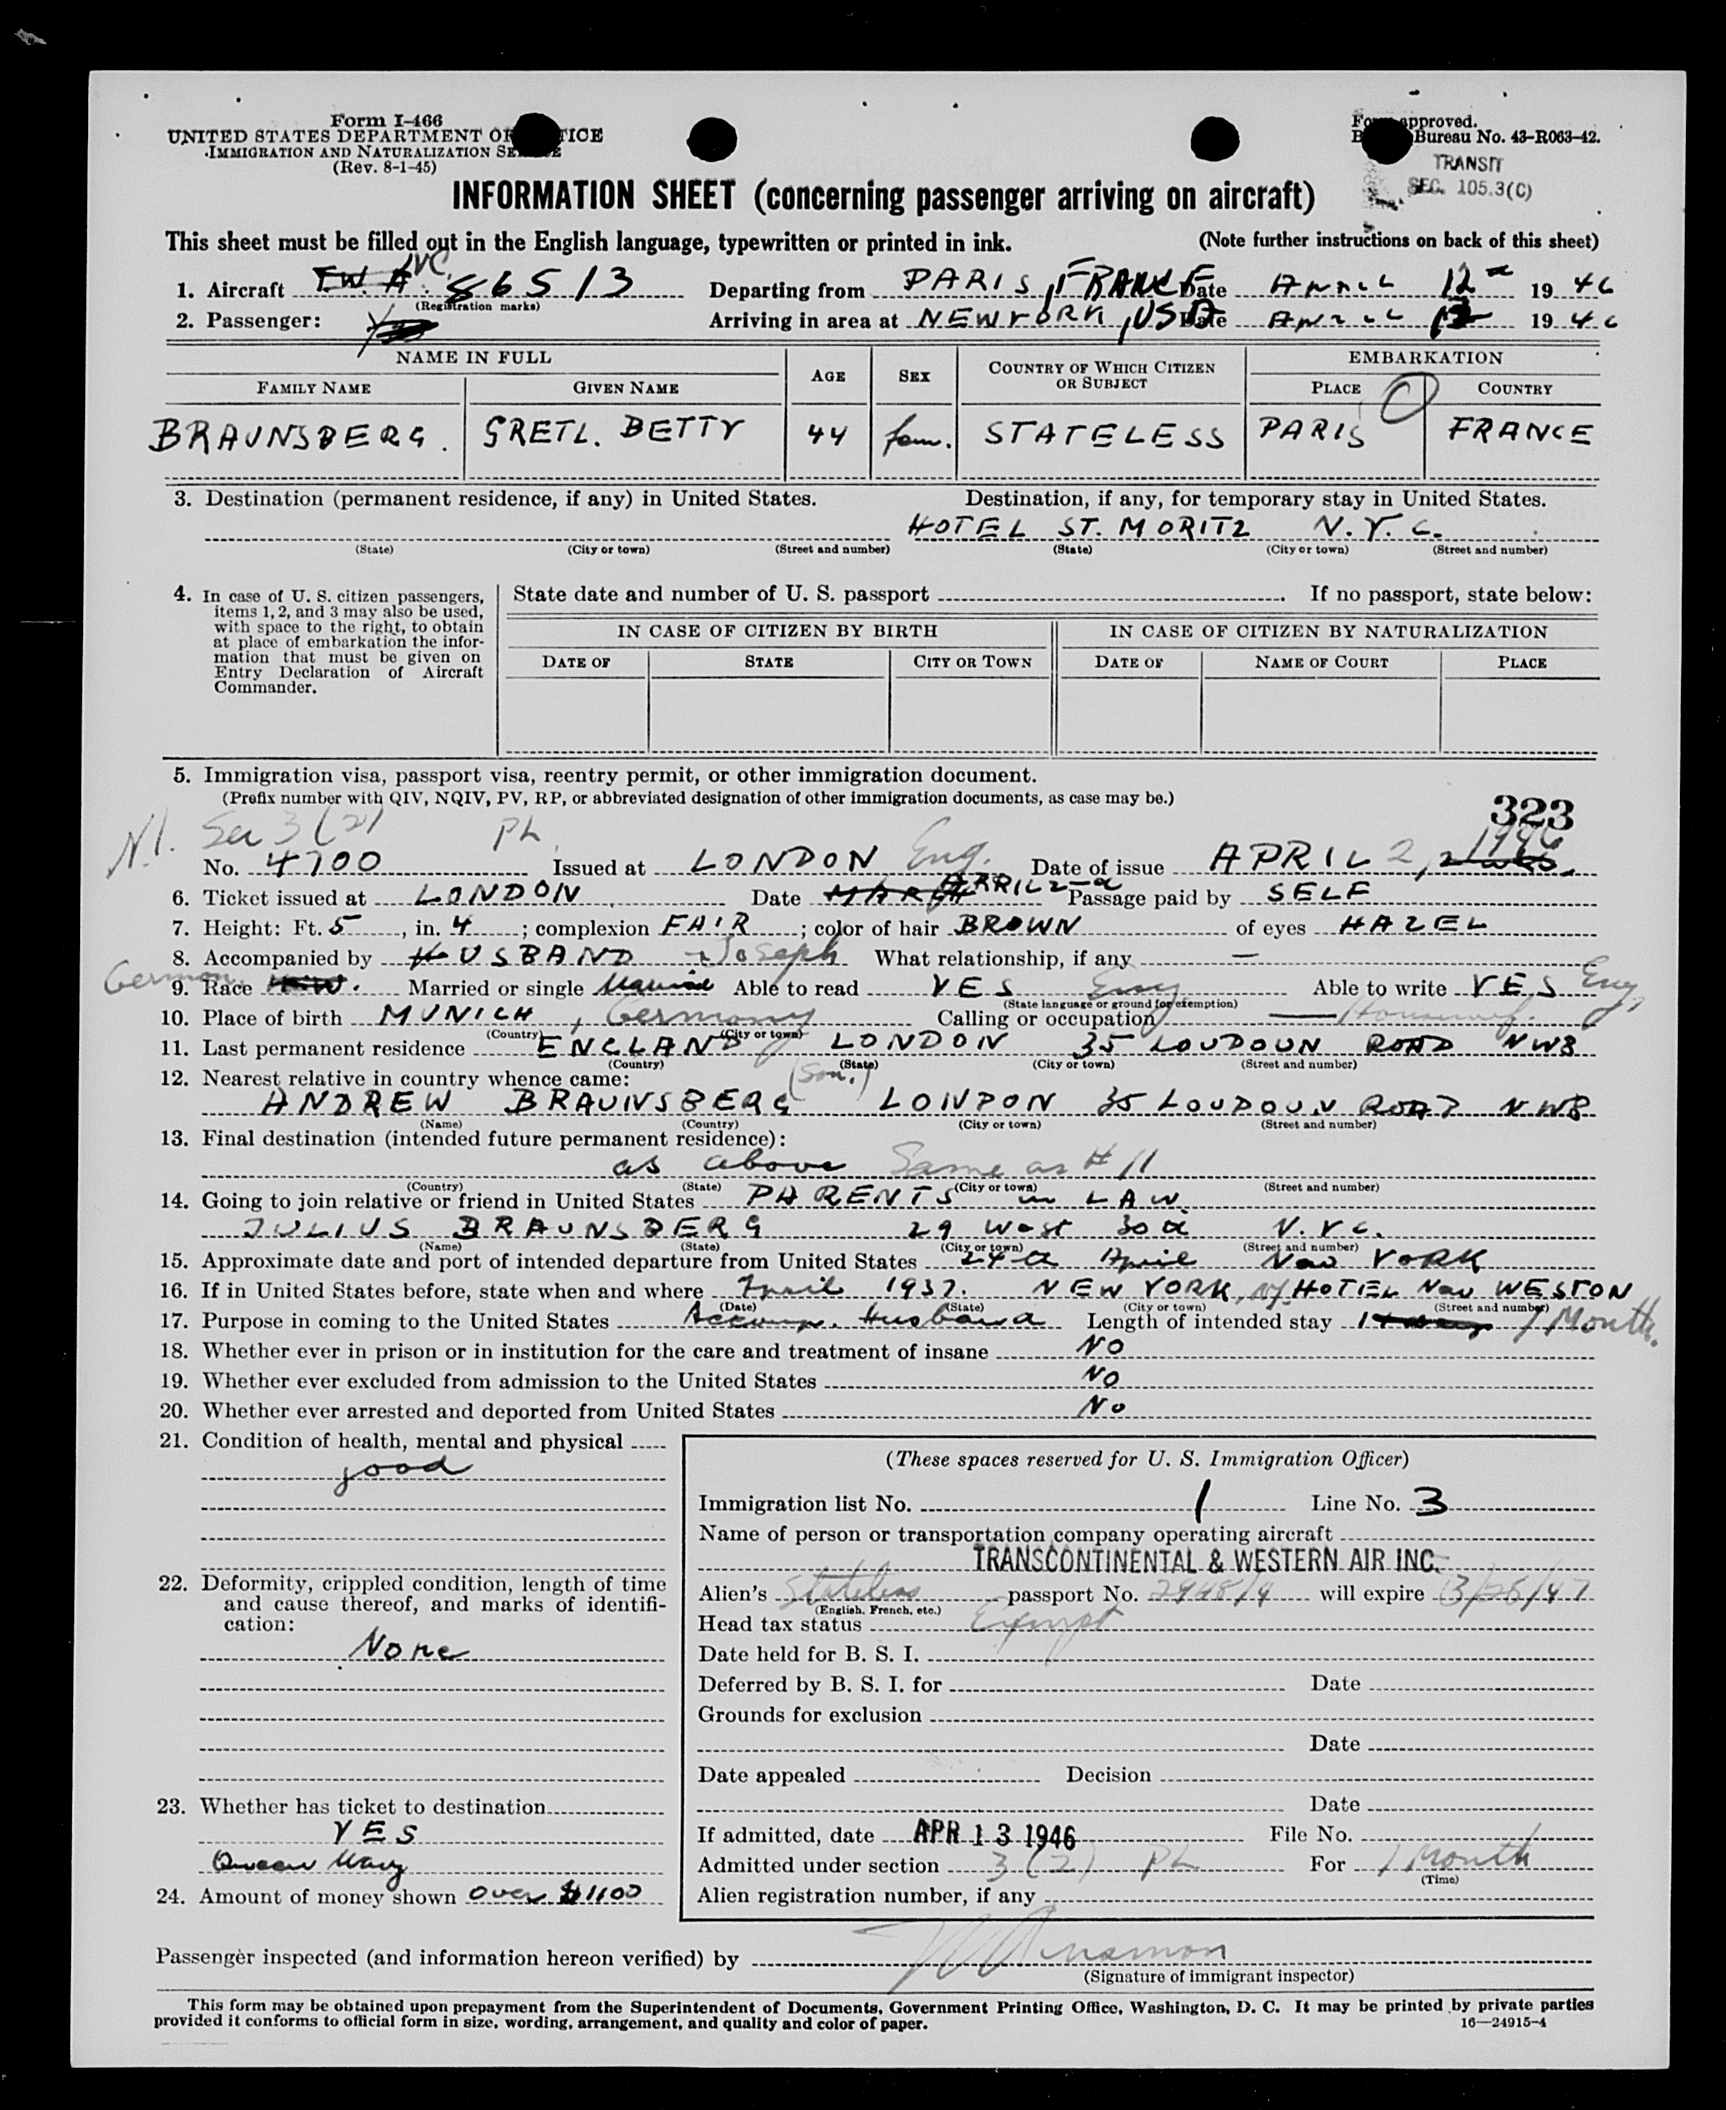 Form I-466
UNITED STATES DEPARTMENT OF JUSTICE
IMMIGRATION AND NATURALIZATION SERVICE
(Rev. 8-1-45)
Form approved.
Bureau No. 43-R063-42.
TRANSIT
SEC. 105.3(C)
INFORMATION SHEET (concerning passenger arriving on aircraft)
This sheet must be filled out in the English language, typewritten or printed in ink. (Note further instructions on back of this sheet)
1. Aircraft T.W.A. NC. 86513 Departing from PARIS, FRANCE Date APRIL 12 1946
(Registration marks)
2. Passenger: Arriving in area at NEW YORK, USA Date APRIL 13 1946
NAME IN FULL AGE SEX COUNTRY OF WHICH CITIZEN OR SUBJECT EMBARKATION
FAMILY NAME GIVEN NAME PLACE COUNTRY
BRAUNSBERG. GRETL. BETTY 44 fem. STATELESS PARIS FRANCE
3. Destination (permanent residence, if any) in United States. Destination, if any, for temporary stay in United States.
HOTEL ST. MORITZ N.Y.C.
(State) (City or town) (Street and number) (State) (City or town) (Street and number)
4. In case of U. S. citizen passengers, items 1, 2, and 3 may also be used, with space to the right, to obtain at place of embarkation the information that must be given on Entry Declaration of Aircraft Commander.
State date and number of U. S. passport If no passport, state below:
IN CASE OF CITIZEN BY BIRTH IN CASE OF CITIZEN BY NATURALIZATION
DATE OF STATE CITY OR TOWN DATE OF NAME OF COURT PLACE
5. Immigration visa, passport visa, reentry permit, or other immigration document.
(Prefix number with QIV, NQIV, PV, RP, or abbreviated designation of other immigration documents, as case may be.)
323
N.I. Sec 3(2) PL 1946
No. 4700 Issued at LONDON Eng. Date of issue APRIL 2,
6. Ticket issued at LONDON Date APRIL 2 Passage paid by SELF
7. Height: Ft. 5, in. 4; complexion FAIR; color of hair BROWN of eyes HAZEL
8. Accompanied by HUSBAND - Joseph What relationship, if any —
9. Race German Married or single Married Able to read YES Eng Able to write YES Eng.
(State language or ground for exemption)
10. Place of birth MUNICH, Germany Calling or occupation Housewife.
(Country) (City or town)
11. Last permanent residence ENGLAND LONDON 35 LOUDOUN ROAD NW8
(Country) (State) (City or town) (Street and number)
12. Nearest relative in country whence came: (Son.)
ANDREW BRAUNSBERG LONDON 35 LOUDOUN ROAD NW8
(Name) (Country) (City or town) (Street and number)
13. Final destination (intended future permanent residence):
as above Same as # 11
(Country) (State) (City or town) (Street and number)
14. Going to join relative or friend in United States PARENTS in LAW.
JULIUS BRAUNSBERG 29 West 30 N.Y.C.
(Name) (State) (City or town) (Street and number)
15. Approximate date and port of intended departure from United States 24 April New YORK
16. If in United States before, state when and where April 1937. NEW YORK, NY. HOTEL New WESTON
(Date) (State) (City or town) (Street and number)
17. Purpose in coming to the United States Accomp. Husband Length of intended stay 1 Month.
18. Whether ever in prison or in institution for the care and treatment of insane NO
19. Whether ever excluded from admission to the United States NO
20. Whether ever arrested and deported from United States No
21. Condition of health, mental and physical
good
22. Deformity, crippled condition, length of time and cause thereof, and marks of identification:
None
23. Whether has ticket to destination
YES
Queen Mary
24. Amount of money shown over $1100
(These spaces reserved for U. S. Immigration Officer)
Immigration list No. 1 Line No. 3
Name of person or transportation company operating aircraft
TRANSCONTINENTAL & WESTERN AIR INC.
Alien's Stateless passport No. 2948/4 will expire 3/26/47
(English, French, etc.)
Head tax status Exempt
Date held for B. S. I.
Deferred by B. S. I. for Date
Grounds for exclusion
Date
Date appealed Decision
Date
If admitted, date APR 13 1946 File No.
Admitted under section 3(2) PL For 1 Month
(Time)
Alien registration number, if any
Passenger inspected (and information hereon verified) by
(Signature of immigrant inspector)
This form may be obtained upon prepayment from the Superintendent of Documents, Government Printing Office, Washington, D. C. It may be printed by private parties
provided it conforms to official form in size, wording, arrangement, and quality and color of paper. 16—24915-4